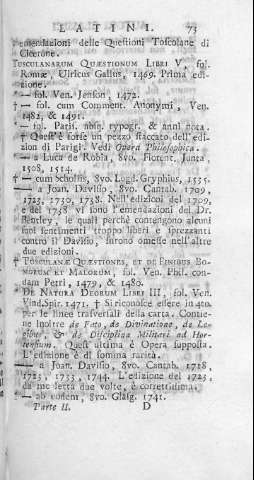 LATINI. 73
emendazioni delle Questioni Toscolane di
Cicerone.
TUSCULANARUM QUÆSTIONUM LIBRI V, fol.
Romæ, Ulricus Gallus, 1469. Prima edi-
zione.
— fol. Ven. Jenson, 1472.
— fol. cum Comment. Anonymi, Ven.
1482, & 1491.
— fol. Paris. absq. typogr. & anni nota.
† Quest' è forse un pezzo staccato dell'edi-
zion di Parigi. Vedi Opera Philosophica.
— a Luca de Robia, 8vo. Florent. Junta,
1508, 1514.
— cum Scholiis, 8vo. Lugd. Gryphius, 1535.
— a Joan. Davisio, 8vo. Cantab. 1709,
1723, 1730, 1738. Nell'edizioni del 1709,
e del 1738 vi sono l'emendazioni del Dr.
Bentley, le quali perchè contengono alcuni
suoi sentimenti troppo liberi e sprezzanti
contro il Davisio, furono omesse nell'altre
due edizioni.
† TUSCULANÆ QUÆSTIONES, ET DE FINIBUS BO-
NORUM ET MALORUM, fol. Ven. Phil. con-
dam Petri, 1479, & 1480.
DE NATURA DEORUM LIBRI III, fol. Ven.
Vind. Spir. 1471. † Si riconosce essere in 4to.
per le linee trasversali della carta. Contie-
ne inoltre de Fato, de Divinatione, de Le-
gibus, & de Disciplina Militari ad Hor-
tensium. Quest' ultima è Opera supposta.
L'edizione è di somma rarità.
— a Joan. Davisio, 8vo. Cantab. 1718,
1723, 1733, 1744. L'edizione del 1723,
da me letta due volte, è correttissima.
— ab eodem, 8vo. Glasg. 1741.
Parte II. D